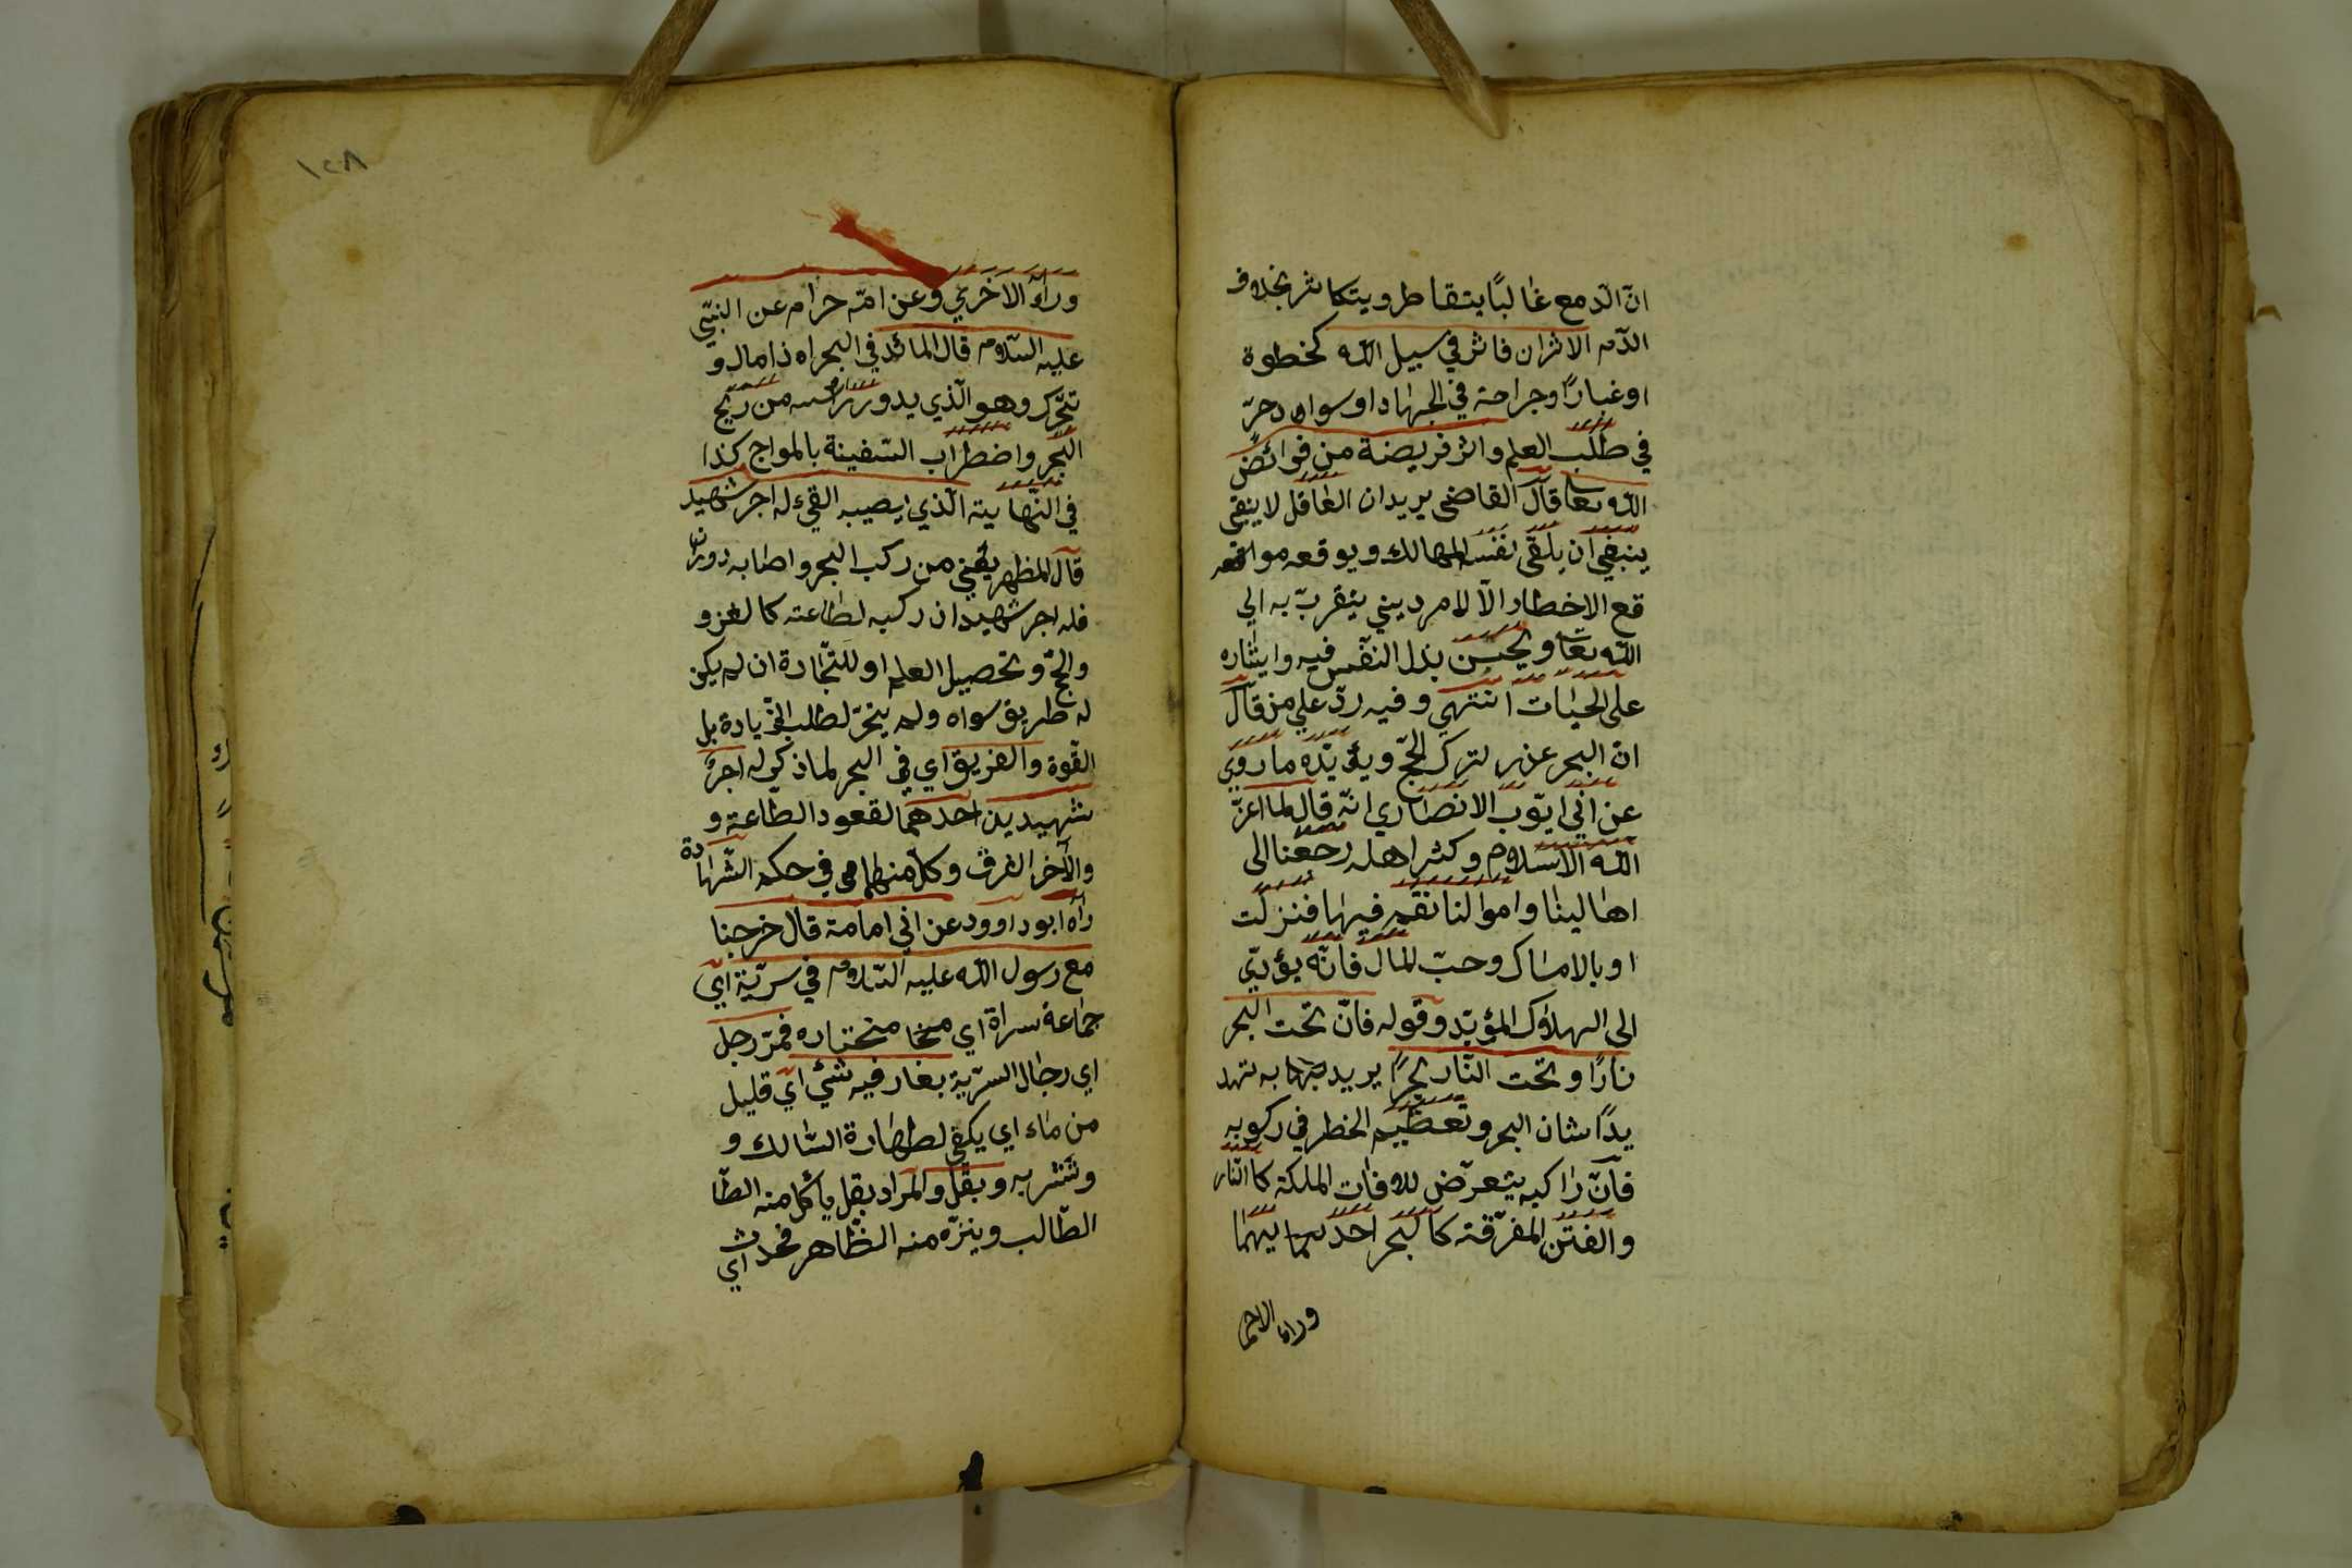 انّ الدّمع غالبًا يتقاطر ويتكاثر بخلاف
الدّم الاثران فاثر في سبيل الله كخطوة
او غبارًا وجراحة في الجهاد او سواد حرّ
في طلب العلم واثر فريضة من فرائض
الله تعا قال القاضي يريد ان العاقل لا ينبغي
ينبغي ان يلقى نفسه المهالك ويوقعه مواقعه
قع الاخطار الّا لامر ديني يتقرّب به الي
الله تعا ويحسن بذل النفس فيه وايثاره
على الحيات انتهي وفيه ردّ علي من قال
انّ البحر عذر لترك الحجّ ويؤيّده ما روي
عن ابي ايّوب الانصاري انّه قال لما اعزّ
الله الاسلام وكثر اهله رجعنا الى
اهالينا واموالنا نقم فيها فنزلت
او بالامساك وحبّ المال فانّه يؤدّي
الى الهلاك المؤبّد وقوله فانّ تحت البحر
نارًا وتحت النّار بحرًا يريد به تهد
يدًا شان البحر وتعظيم الخطر في ركوبه
فانّ راكبه يتعرّض للافات الملكة كا النّار
والفتن المفرّقة كا لبحر احديهما
وراء الاخر
١٢٨
وراء الاخري وعن امّ حرام عن النّبي
عليه السّلام قال المائد في البحر اه ذا مال و
تتحّرك وهو الّذي يدور رأسه من ريح
البحر واضطراب السّفينة بالمواج كذا
في النّهاية الّذي يصيبه القيء له اجر شهيد
قال المظهر يعني من ركب البحر واصابه دوران
فله اجر شهيد ان ركبه لطاعته كا لغزو
والحجّ وتحصيل العلم او للتّجارة ان لم يكن
له طريق سواه ولم يتجر لطلب الزّيادة بل
القّوة والغريق اي في البحر لما ذكر له اجر
شهيدين احدهما لقعود الطّاعة و
والآخر الغرق وكلّ منهما في حكم الشّهادة
راه ابو داوود عن ابي امامة قال خرجنا
مع رسول الله عليه السّلام في سريّة ايّ
جماعة سراة اي منختاره فمرّ رجل
اي رجال السرّية بغار فيه شئ ايّ قليل
من ماء اي يكفي لطهارة السّالك و
وتشربه وبقل والمراد بقل يأكل منه الطّا
الطّالب وينزّه منه النظّاهر فحدث اي